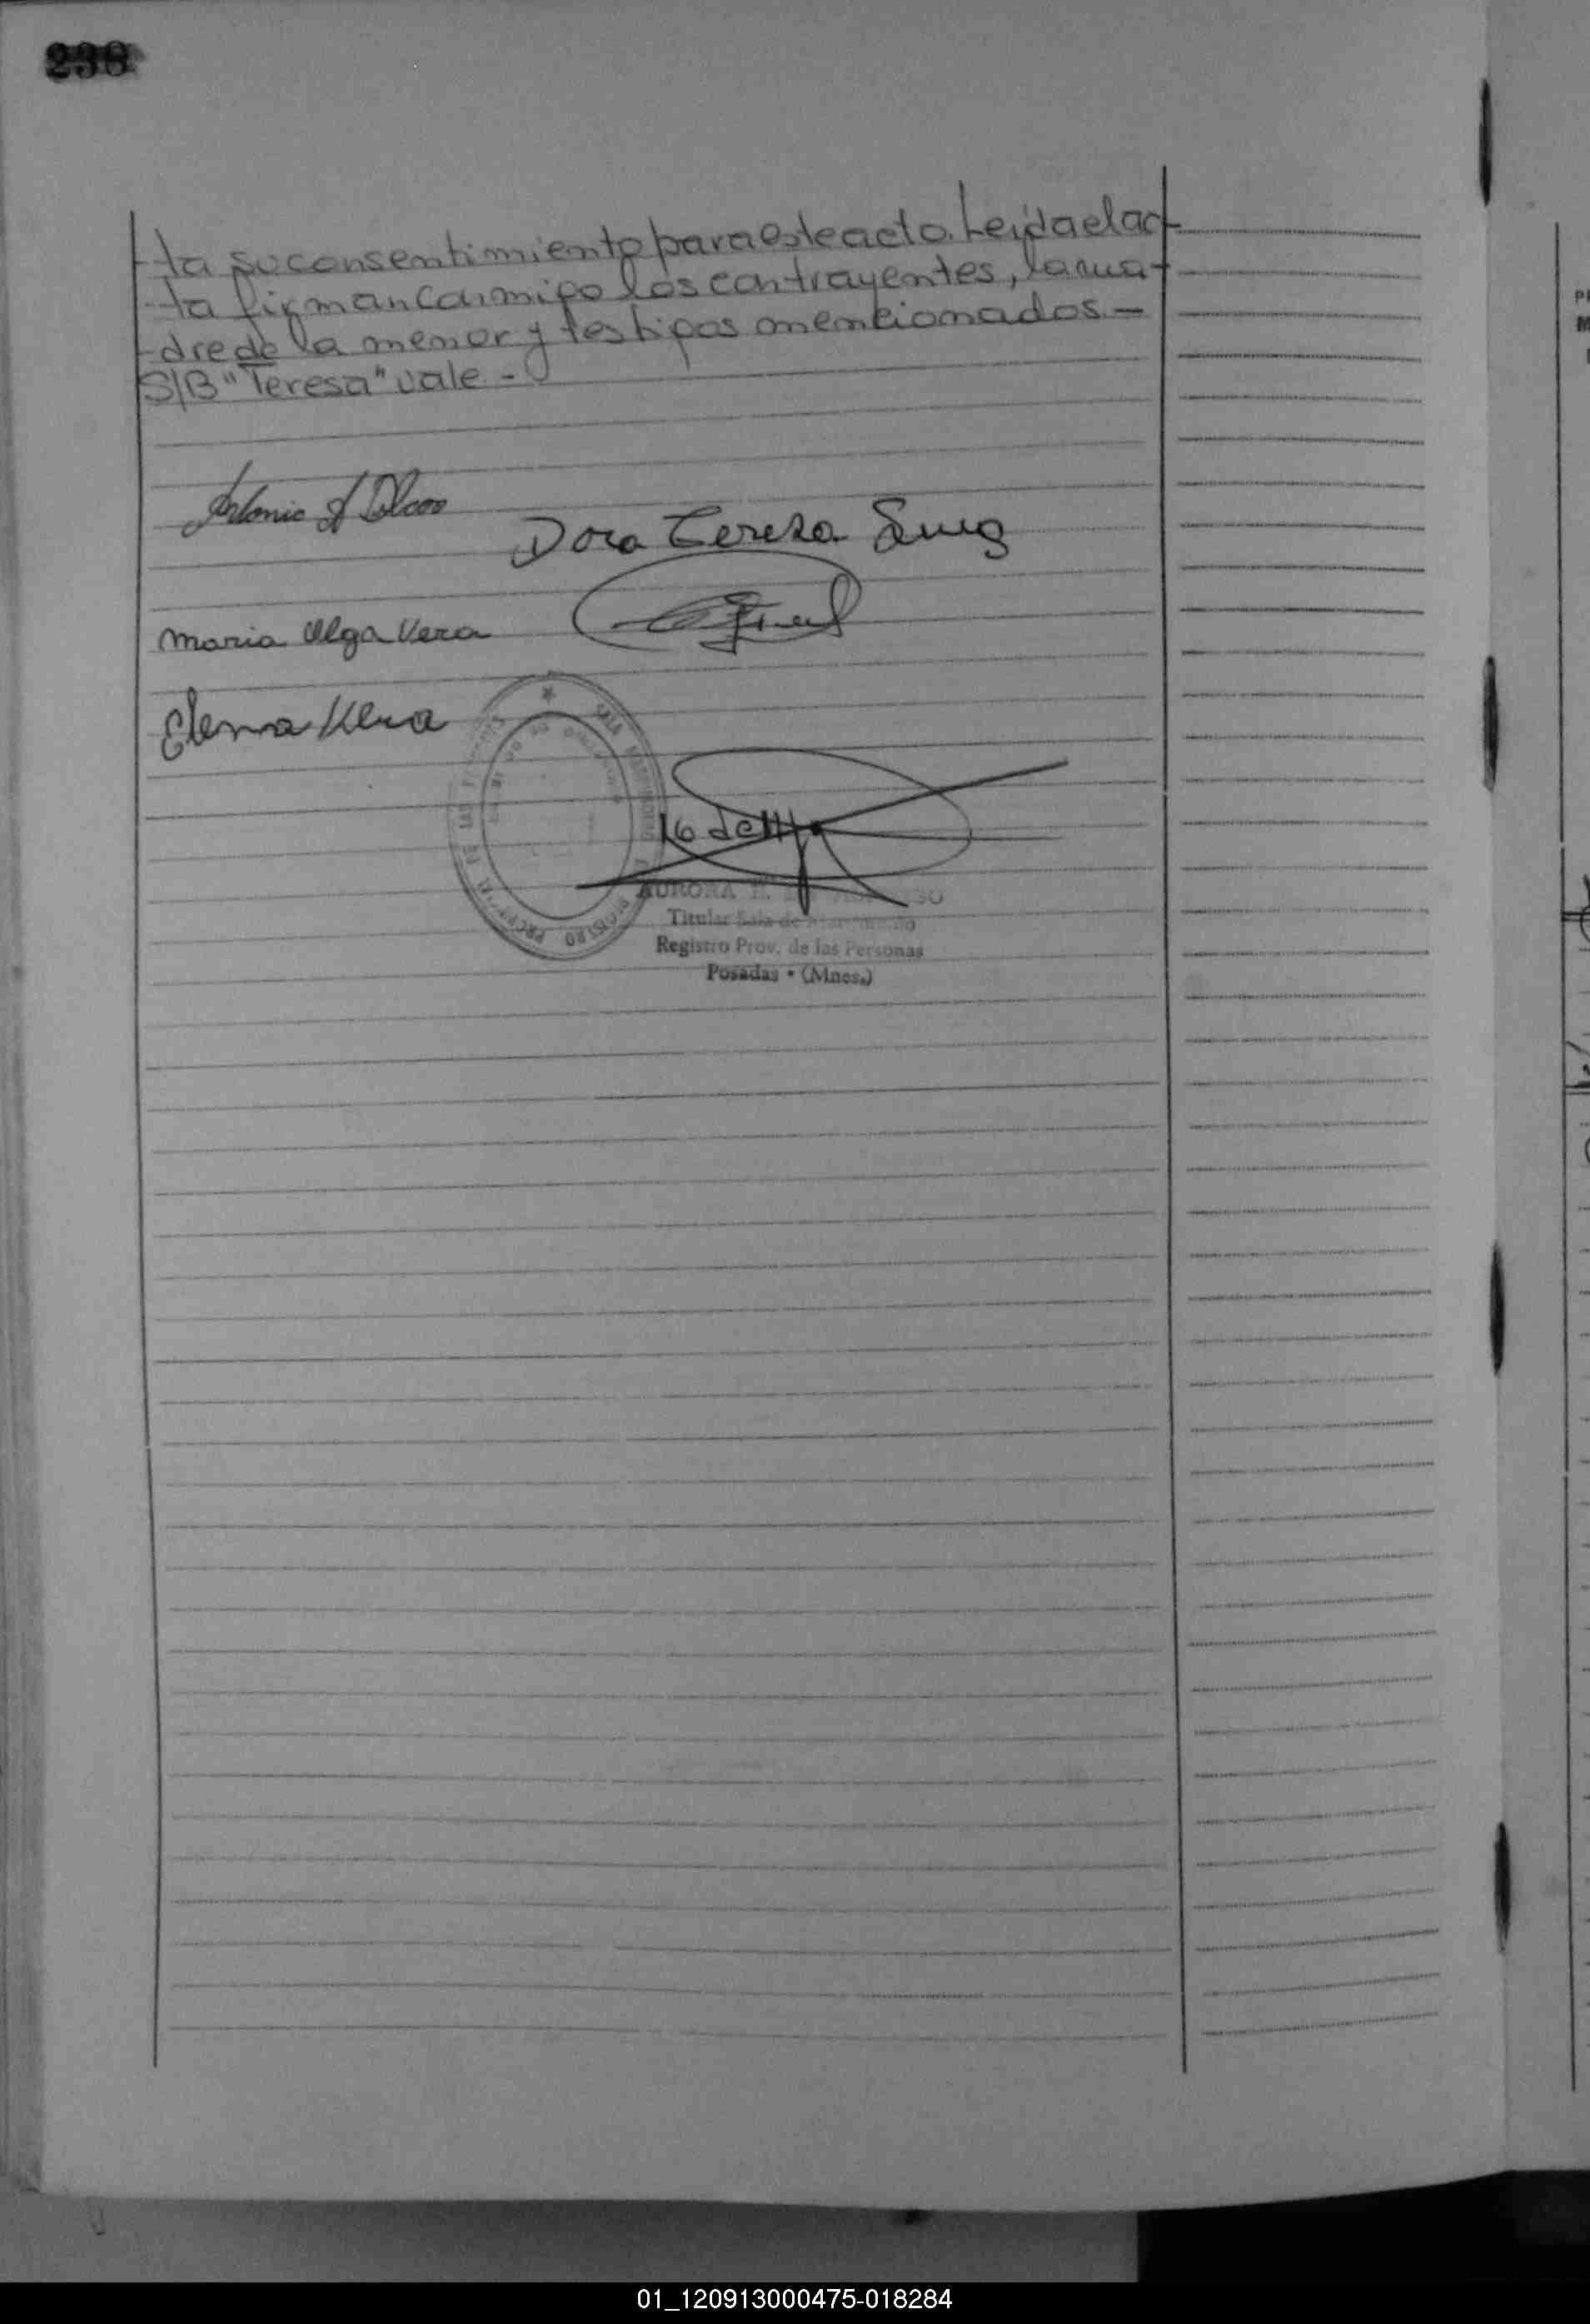 238
ta su consentimiento para este acto. Leída el ac-
ta firman conmigo los contrayentes, la ma-
dre de la menor y testigos mencionados.-
S/B "Teresa" vale.-
Antonio A
Dora Teresa
Maria Olga Vera
Elena Vera
16 de
REGISTRO PROVINCIAL DE LAS PERSONAS
AURORA H.
Titular Sala de
Registro Prov. de las Personas
Posadas • (Mnes.)
01_120913000475-018284